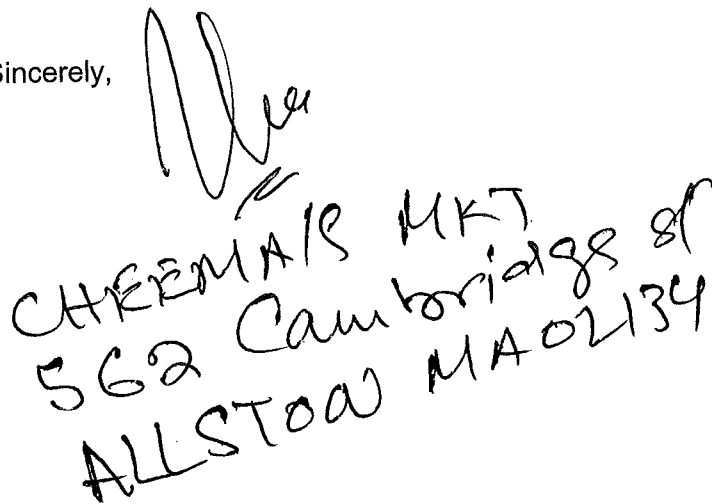 Sincerely,
CHEEMA'S MKT
562 Cambridge St
ALLSTON MA 02134